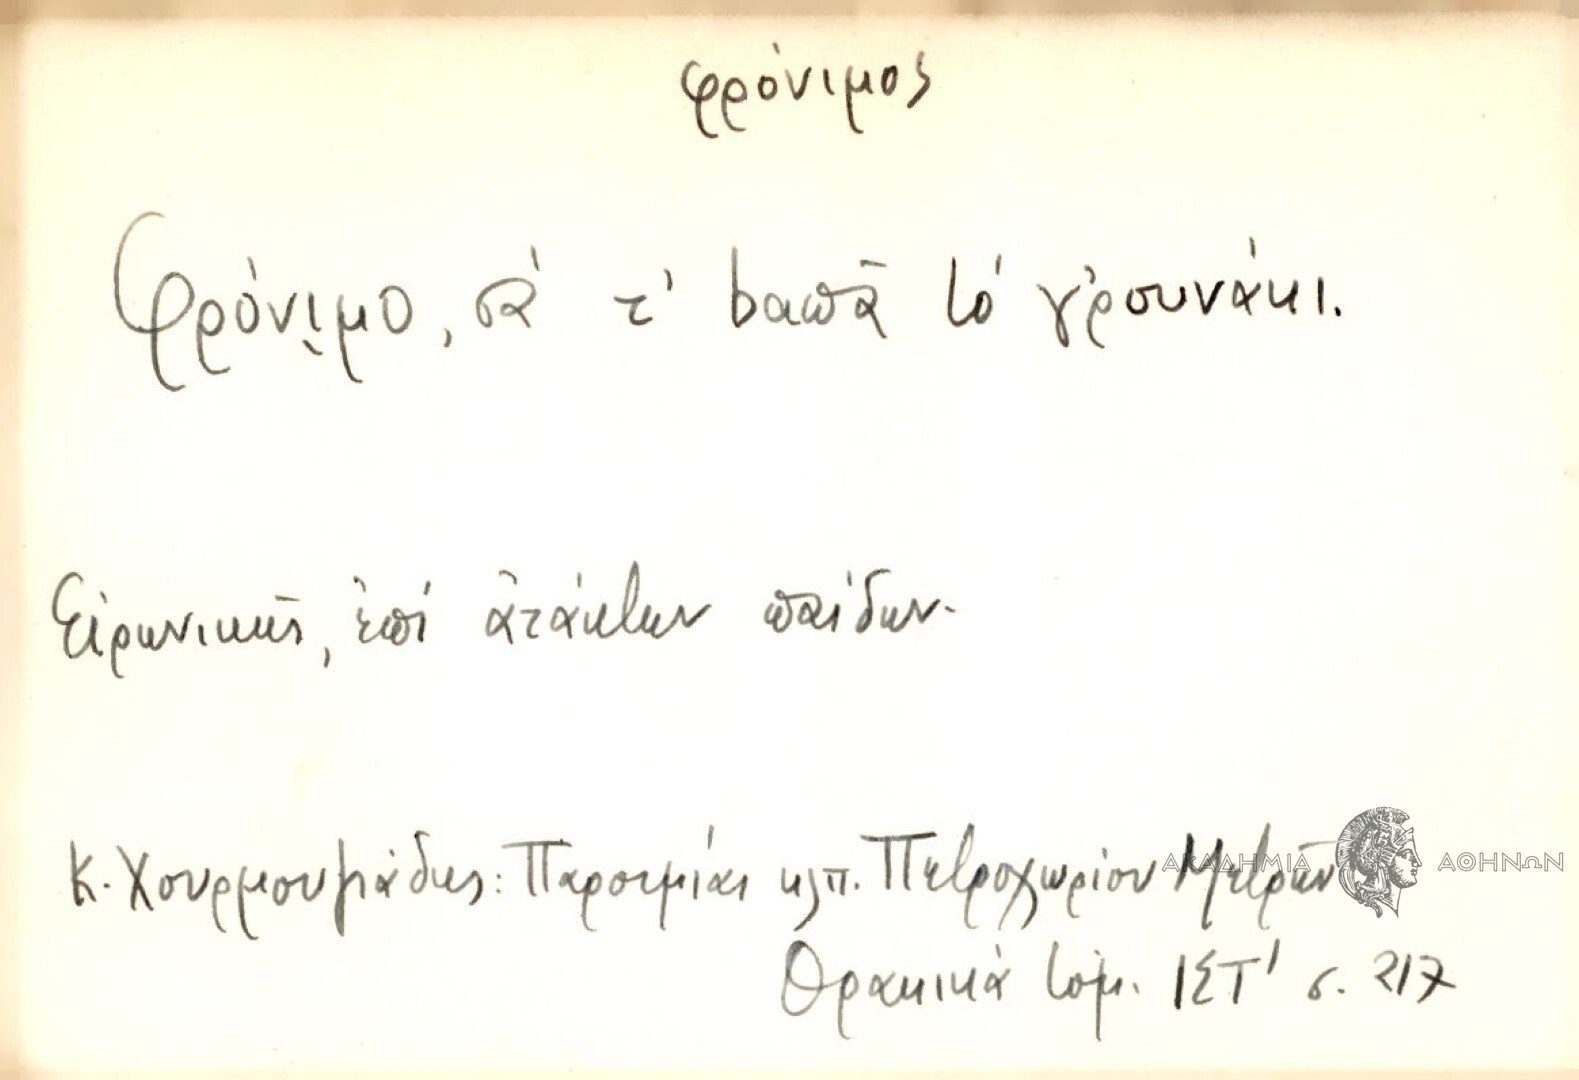 φρόνιμος
Φρόνιμο, σὰ τ' bαπᾶ τὸ γ'ρουνάκι.
Εἰρωνικῶς, ἐπὶ ἀτάκτων παίδων.
Κ. Χουρμουζιάδης: Παροιμίαι κλπ. Πετροχωρίου Μετρῶν
Θρακικὰ τομ. ΙΣΤ' σ. 217
ΑΚΑΔΗΜΙΑ ΑΘΗΝΩΝ